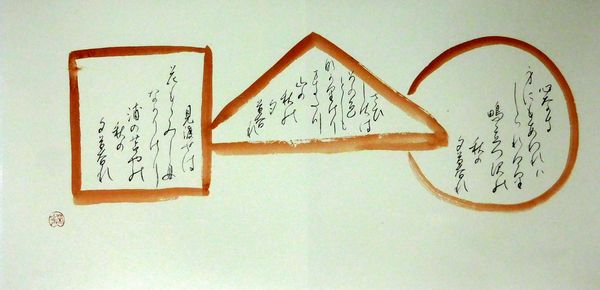 心なき
身にもあわれハ
しられけり
鴫立つ沢の
秋の
夕暮れ
さひ
しさは
その色
としも
なかりけり
まき立つ
山の
秋の
夕
暮れ
見渡せは
花ももみちも
なかりけり
浦の苫やの
秋の
夕暮れ